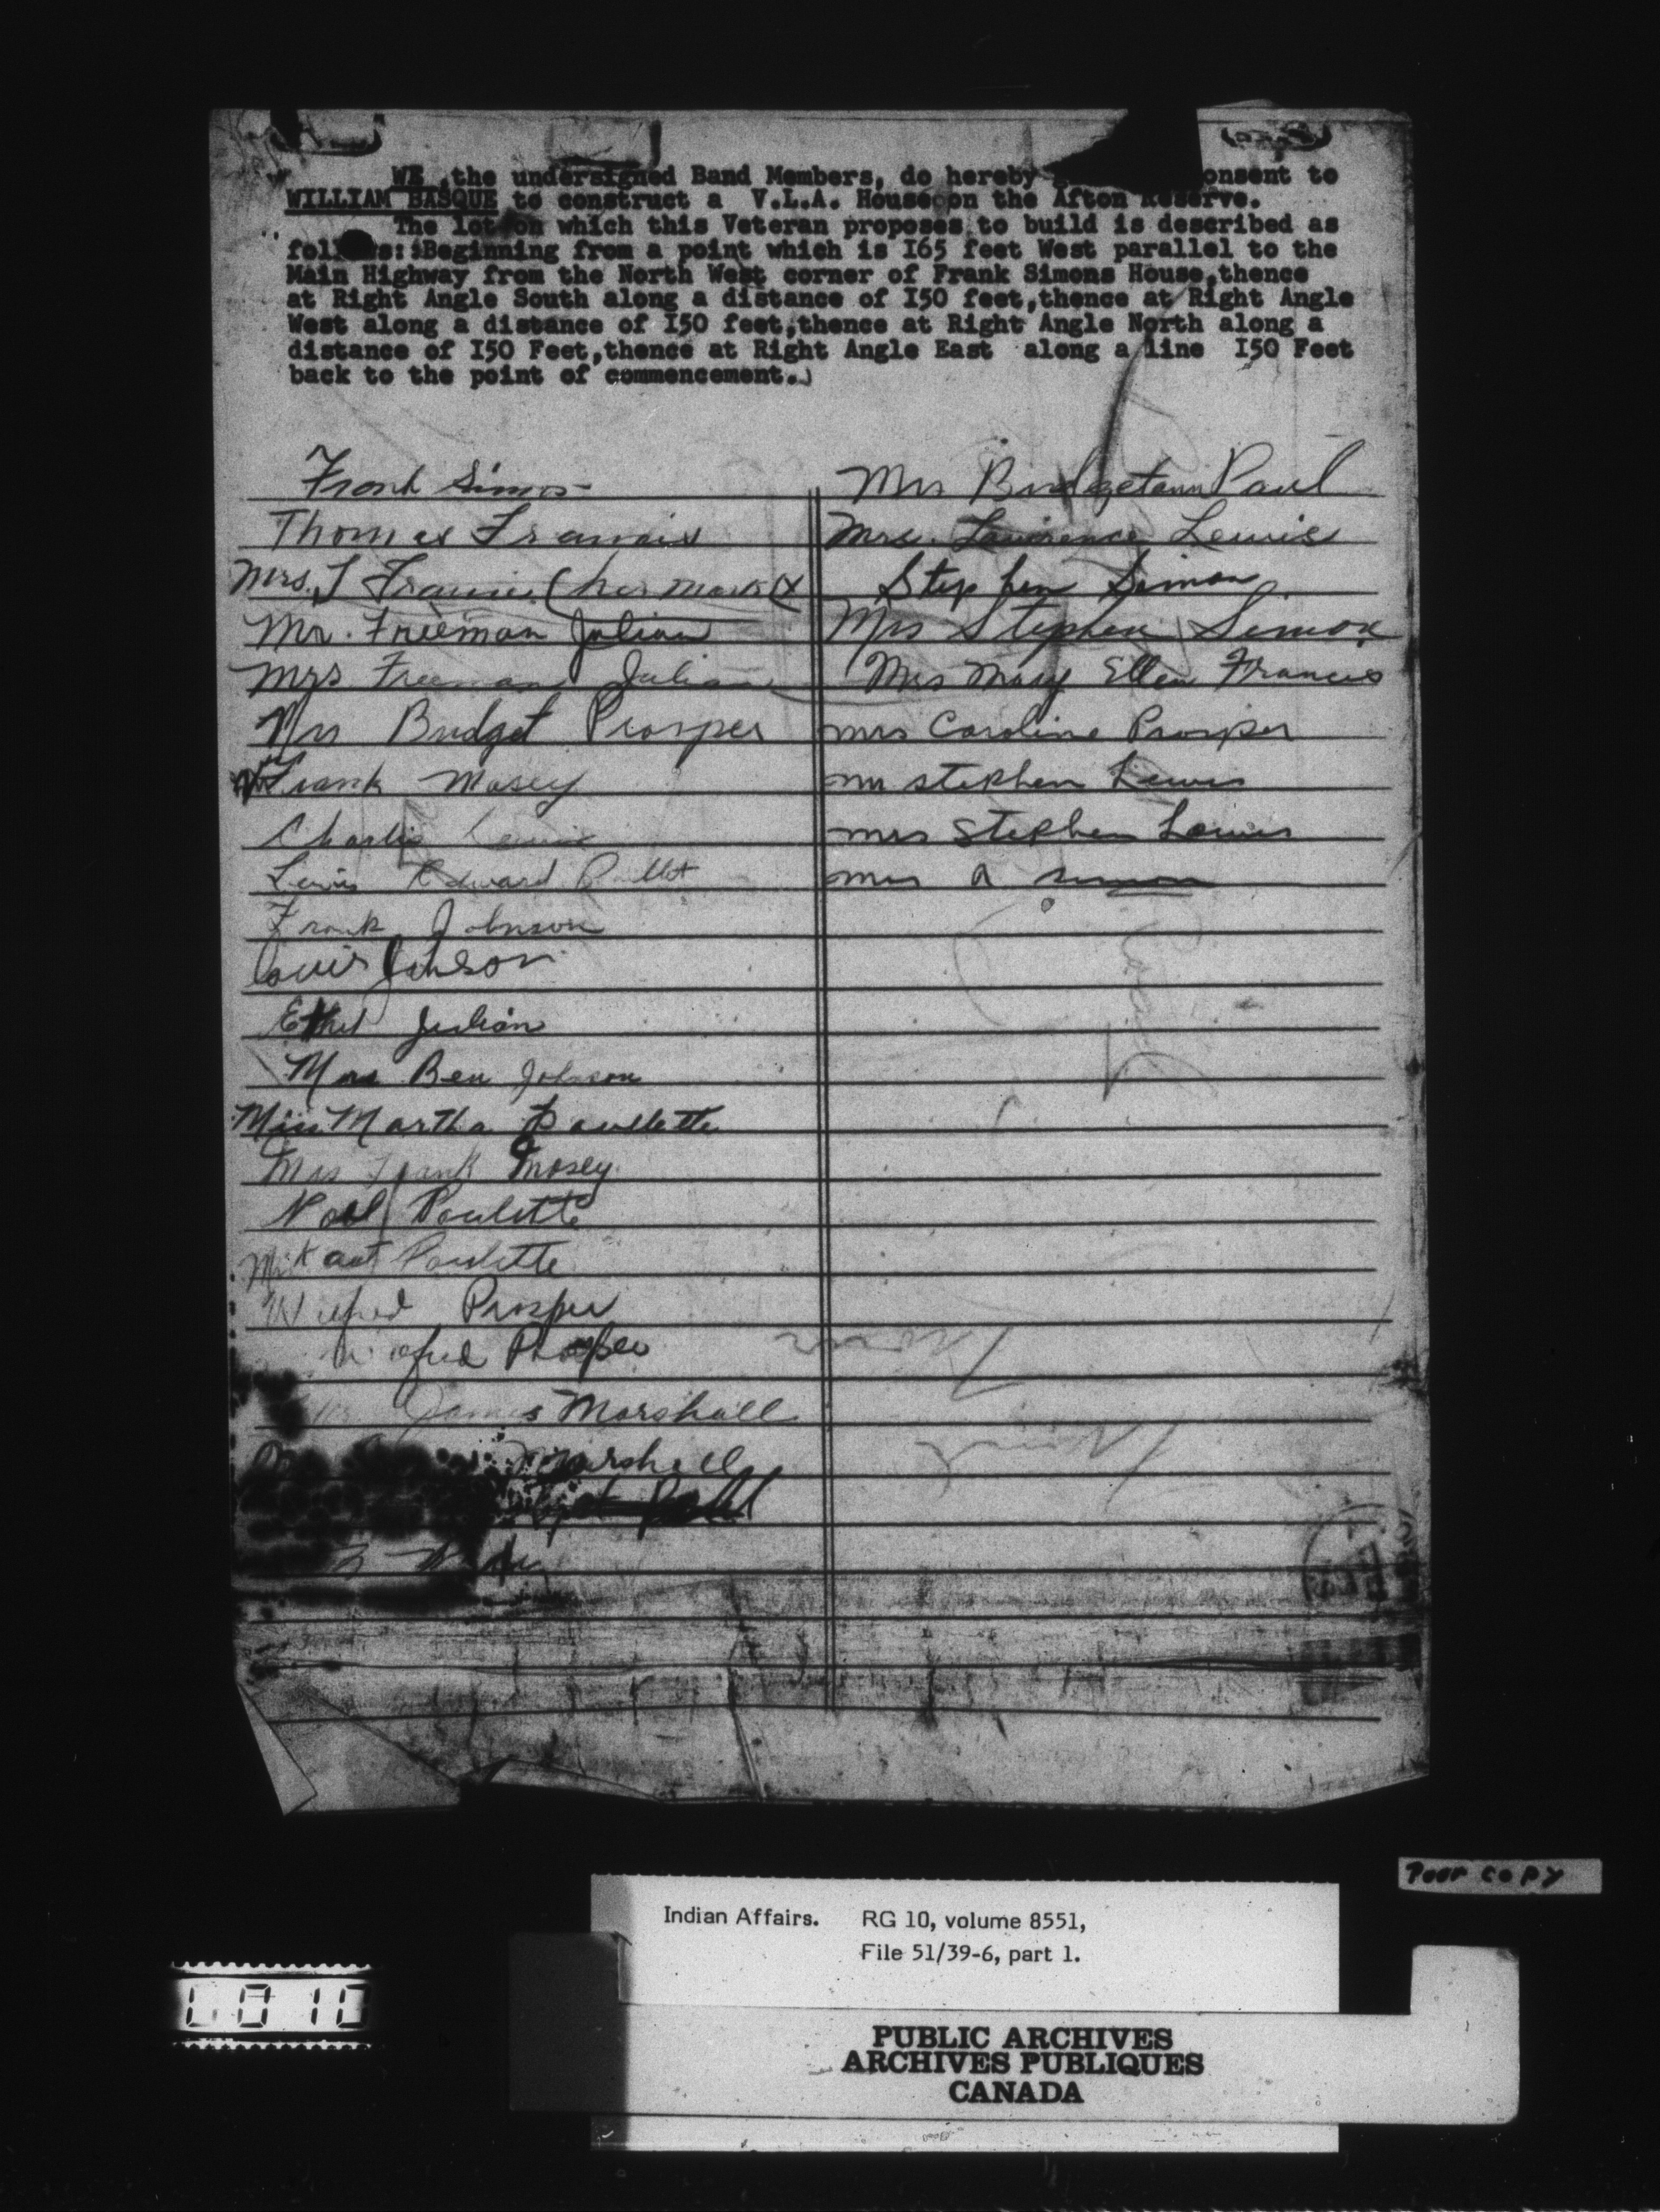 WE, the undersigned Band Members, do hereby onsent to
WILLIAM BASQUE to construct a V.L.A. House on the Afton Reserve.
The lot on which this Veteran proposes to build is described as
follows: Beginning from a point which is I65 feet West parallel to the
Main Highway from the North West corner of Frank Simons House, thence
at Right Angle South along a distance of I50 feet, thence at Right Angle
West along a distance of I50 feet, thence at Right Angle North along a
distance of I50 Feet, thence at Right Angle East along a line I50 Feet
back to the point of commencement.
Frank Simon
Thomas Francis
Mrs. T Francis (her mark) X
Mr. Freeman Julian
Mrs Freeman Julian
Mrs Bridget Prosper
Frank Mosey
Charlie Lewis
Lewis Edward
Frank Johnson
Louis Johnson
Ethel Julian
Mrs Ben Johnson
Miss Martha Paullette
Mrs Frank Mosey
Noel Paulette
Paulette
Wilfred Prosper
Prosper
James Marshall
Marshall
Mrs Bridgetann Paul
Mrs. Lawrence Lewis
Stephen Simon
Mrs Stephen Simon
Mrs Mary Ellen Francis
mrs Caroline Prosper
mr stephen Lewis
mrs stephen Lewis
mrs a simon
Poor copy
Indian Affairs. RG 10, volume 8551,
File 51/39-6, part 1.
PUBLIC ARCHIVES
ARCHIVES PUBLIQUES
CANADA